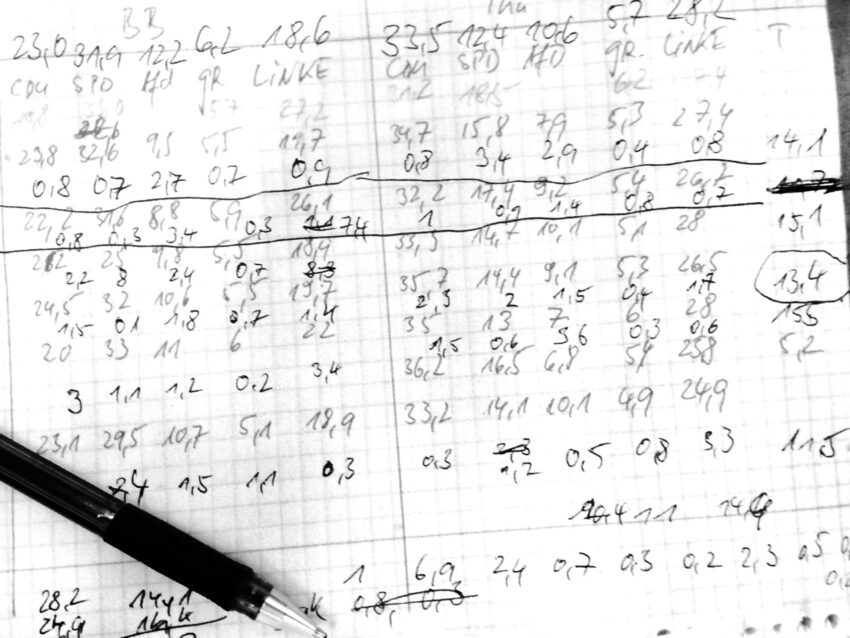 BB Thü
23,0 31,9 12,2 6,2 18,6 33,5 12,4 10,6 5,7 28,2
CDU SPD AfD gR LiNKE CDU SPD AfD gR LiNKE T
31,2
27,2
23,8 32,6 9,5 5,5 19,7 34,7 15,8 7,9 5,3 27,4
0,8 0,7 2,7 0,7 0,9 0,8 3,4 2,9 0,4 0,8 14,1
22,2 31,6 8,8 5,9 26,1 32,2 17,4 9,2 5,4 26,2
0,8 0,3 3,4 0,3 7,4 1 0,9 1,4 0,8 0,7 15,1
25 9,8 5,5 18,4 33,5 14,7 10,1 5,1 28
2,2 8 2,4 0,7 35,7 14,4 9,1 5,3 26,5 13,4
24,5 32 10,6 5,5 19,7 2,3 2 1,5 0,4 1,7
1,5 0,1 1,8 0,7 1,4 35 13 7 6 28 155
20 33 11 6 22 1,5 0,6 3,6 0,3 0,6 5,2
36,2 16,5 6,8 25,8
3 1,1 1,2 0,2 3,4
33,2 14,1 10,1 4,9 24,9
23,1 29,5 10,7 5,1 18,9
2,4 1,5 1,1 0,3 0,3 1,2 0,5 0,8 3,3 11,5
11
1 6,9 2,4 0,7 0,3 0,2 2,3 0,5
0,8, 0,3
28,2 14,1
24,4